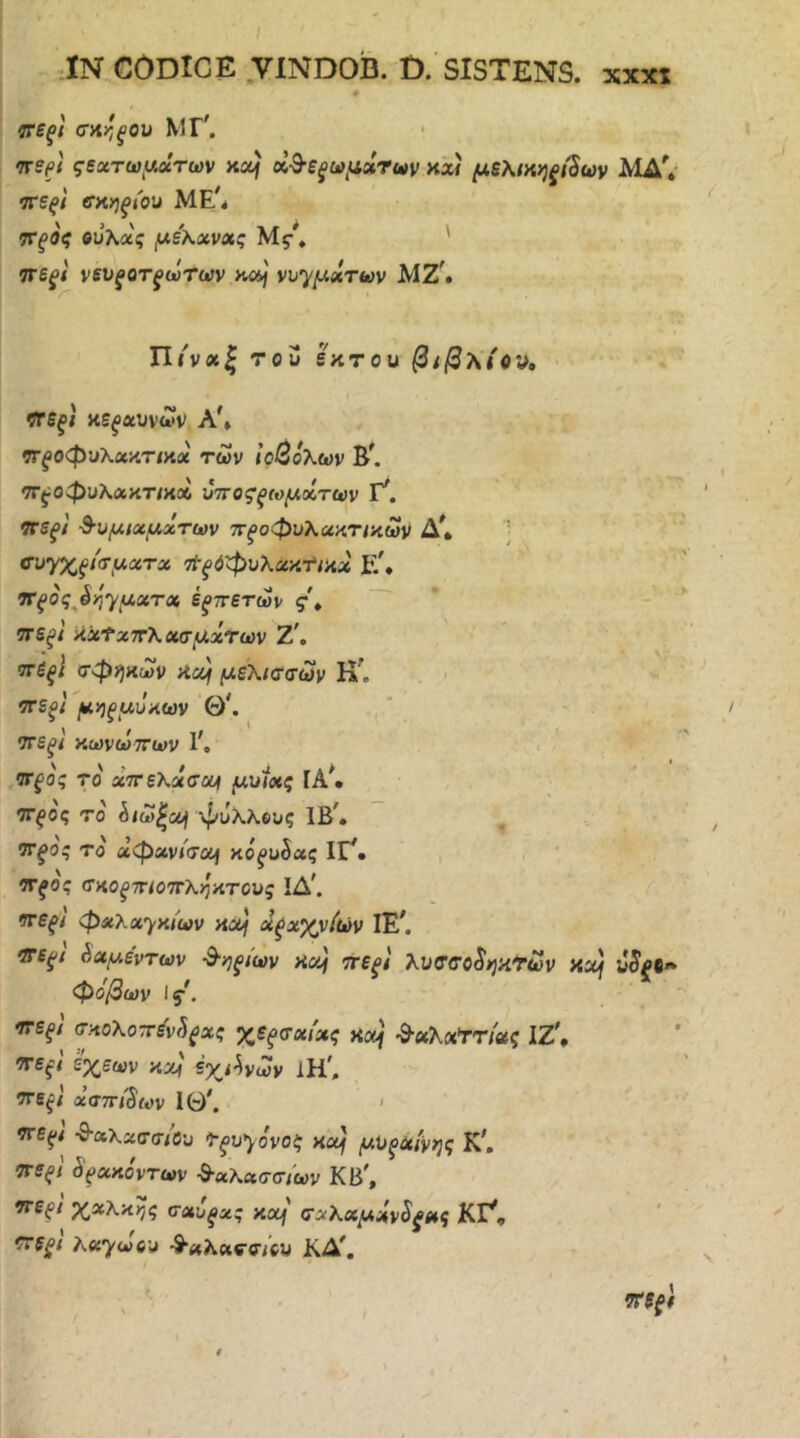 IN CODICE VINDOB. D. SISTENS. XXXI
περὶ σκήρου ΜΓ'.
περὶ ϛεατωμάτων καὶ ἀθερωμάτων καὶ μελικηρίδων ΜΔ'.
περὶ σκηρίου ΜΕ'.
πρὸς οὐλὰς μέλανας Μϛ'.
περὶ νευροτρώτων καὶ νυγμάτων ΜΖ'.
Πίναξ τοῦ ἕκτου βιβλίου.
περὶ κεραυνῶν Α'.
προφυλακτικὰ τῶν ἰοβόλων Β'.
προφυλακτικὰ ὑποϛρωμάτων Γ'.
περὶ θυμιαμάτων προφυλακτικῶν Δ'.
συγχρίσματα προφυλακτικὰ Ε'.
πρὸς δήγματα ἑρπετῶν ϛ'.
περὶ καταπλασμάτων Ζ'.
περὶ σφηκῶν καὶ μελισσῶν Η'.
περὶ μηρμύκων Θ'.
περὶ κωνώπων Ι'.
πρὸς τὸ ἀπελάσαι μυίας ΙΑ'.
πρὸς τὸ διῶξαι ψύλλους ΙΒ'.
πρὸς τὸ ἀφανίσαι κόρυδας ΙΓ'.
πρὸς σκορπιοπλήκτους ΙΔ'.
περὶ φαλαγκίων καὶ ἀραχνίων ΙΕ'.
περὶ δαμέντων θηρίων καὶ περὶ λυσσοδηκτῶν καὶ ὑδρο-
φόβων Ιϛ'.
περὶ σκολοπένδρας χερσαίας καὶ θαλαττίας ΙΖ'.
περὶ ἔχεων καὶ ἐχιδνῶν ΙΗ'.
περὶ ἀσπίδων ΙΘ'.
περὶ θαλασσίου τρυγόνος καὶ μυραίνης Κ'.
περὶ δρακόντων θαλασσίων ΚΒ',
περὶ χαλκῆς σαύρας καὶ σαλαμάνδρας ΚΓ'.
περὶ λαγώου θαλασσίου ΚΔ'.
περὶ